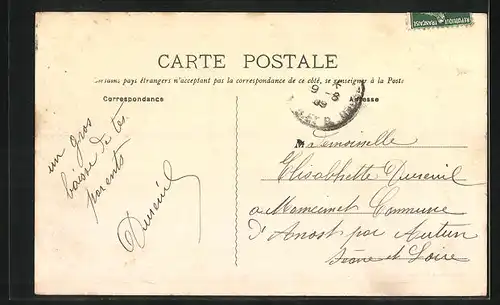 RÉPUBLIQUE FRANÇAISE
CARTE POSTALE
Certains pays étrangers n'acceptant pas la correspondance de ce côté, se renseigner à la Poste
Correspondance
Adresse
un gros
baiser de tes
parents
Dureuil
Mademoiselle
Elisabhette Dureuil
a Moncimet Commune
d'Anost par Autun
Saône et Loire